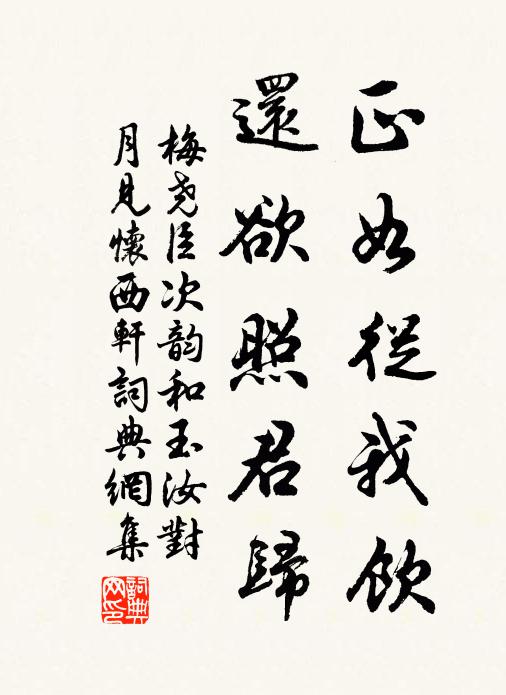 正如從我飲
還欲照君歸
梅尧臣次韵和玉汝對
月見懷西軒詞典網集
詞典
网印